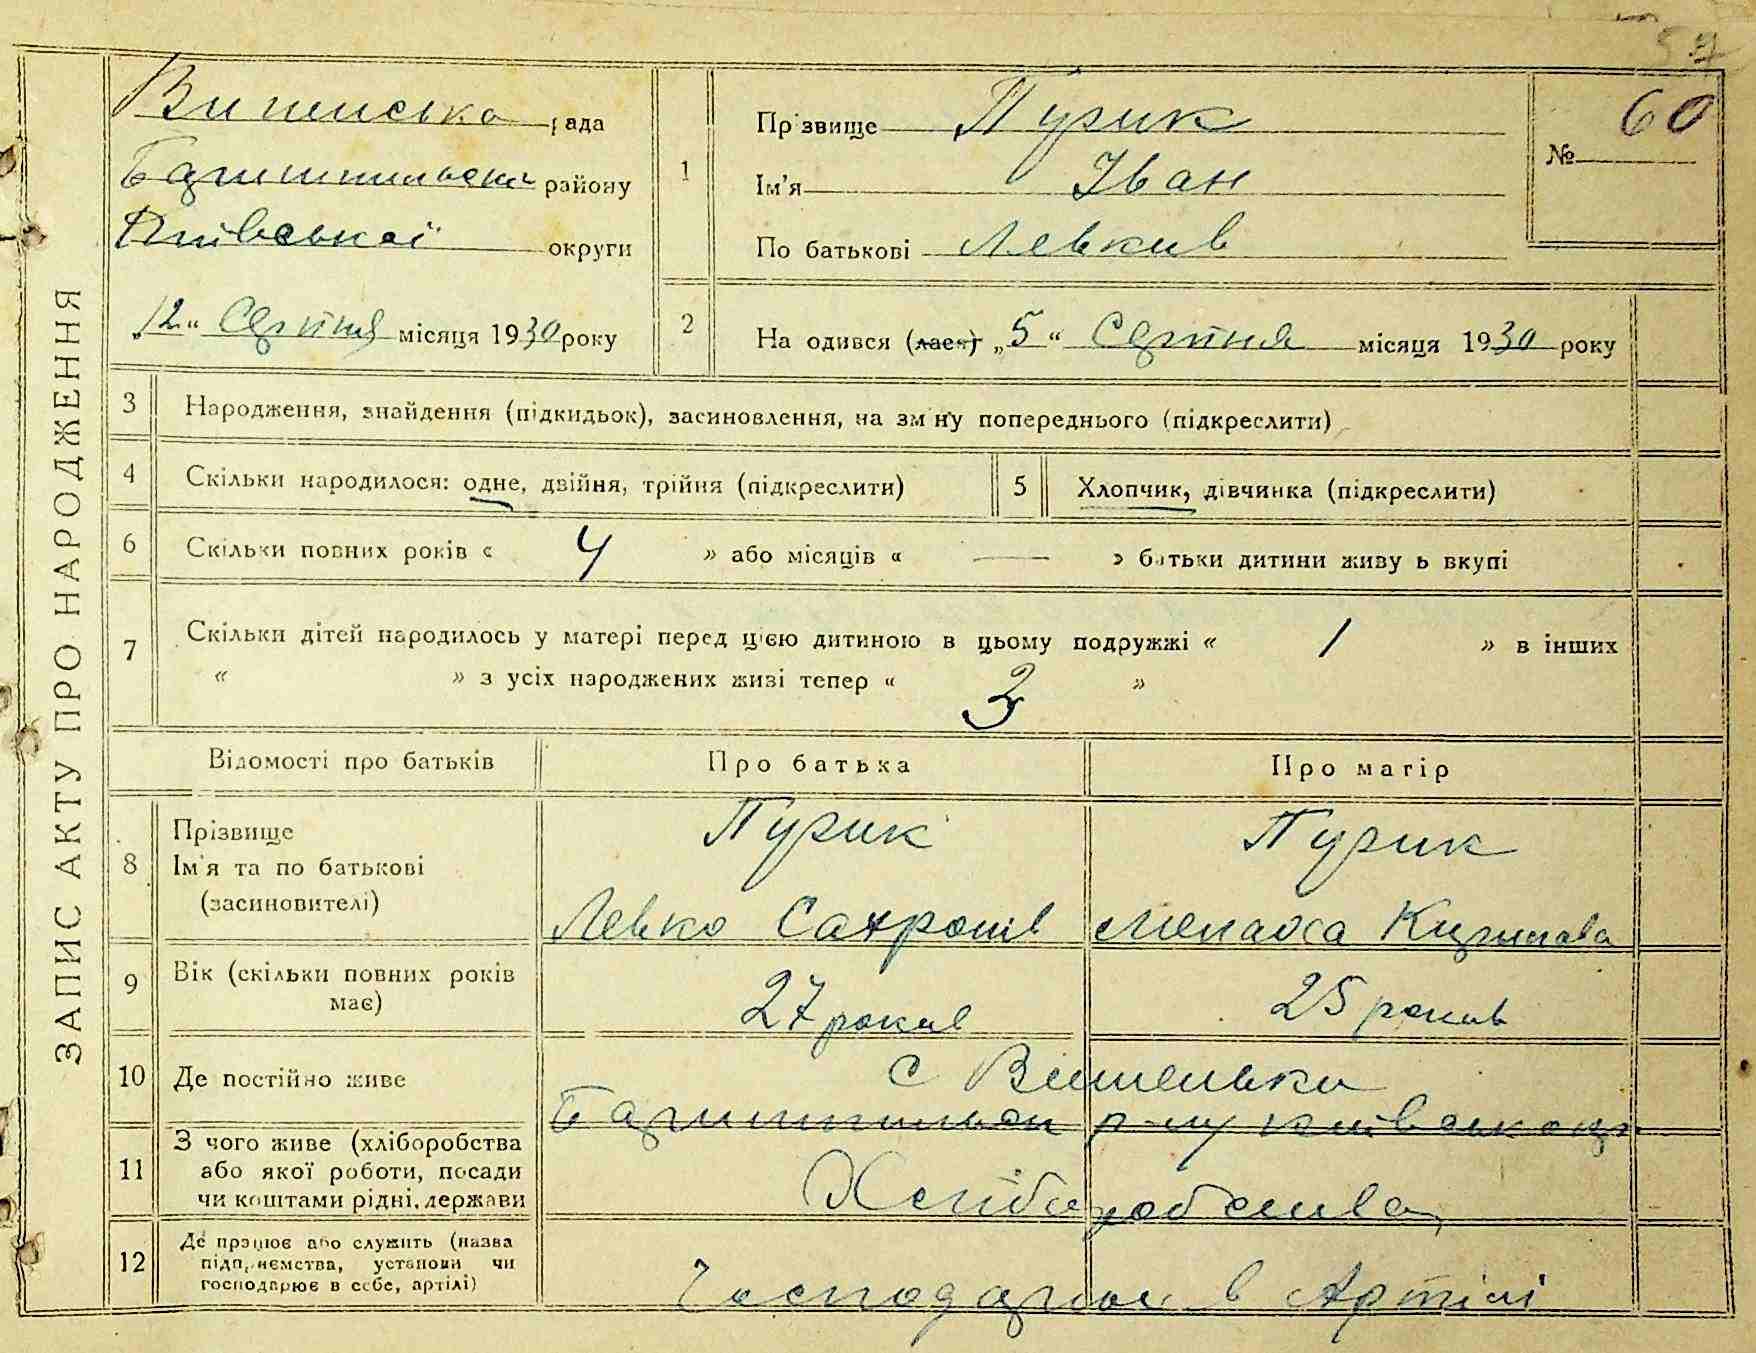 57
ЗАПИС АКТУ ПРО НАРОДЖЕННЯ
Вишенська рада
Баришпильська району
Київської округи
„12“ Серпня місяця 1930 року
1
Прізвище Пурик
Ім'я Іван
По батькові Левків
№ 60
2
На одився (лася) „5“ Серпня місяця 1930 року
3 Народження, знайдення (підкидьок), засиновлення, на зміну попереднього (підкреслити)
4 Скільки народилося: одне, двійня, трійня (підкреслити)
5 Хлопчик, дівчинка (підкреслити)
6 Скільки повних років « 4 » або місяців « — » батьки дитини живуть вкупі
7 Скільки дітей народилось у матері перед цією дитиною в цьому подружжі « 1 » в інших
« » з усіх народжених живі тепер « 3 »
Відомості про батьків Про батька Про матір
8 Прізвище
Ім'я та по батькові
(засиновителі)
Пурик
Левко
Пурик
9 Вік (скільки повних років
має)
27 років
25 років
10 Де постійно живе
с Вишеньки
Баришпильськ р-ну Київськ окр
11 З чого живе (хліборобства
або якої роботи, посади
чи коштами рідні, держави
Хліборобства
12 Де працює або служить (назва
підприємства, установи чи
господарює в себе, артілі)
Господарює в Артілі